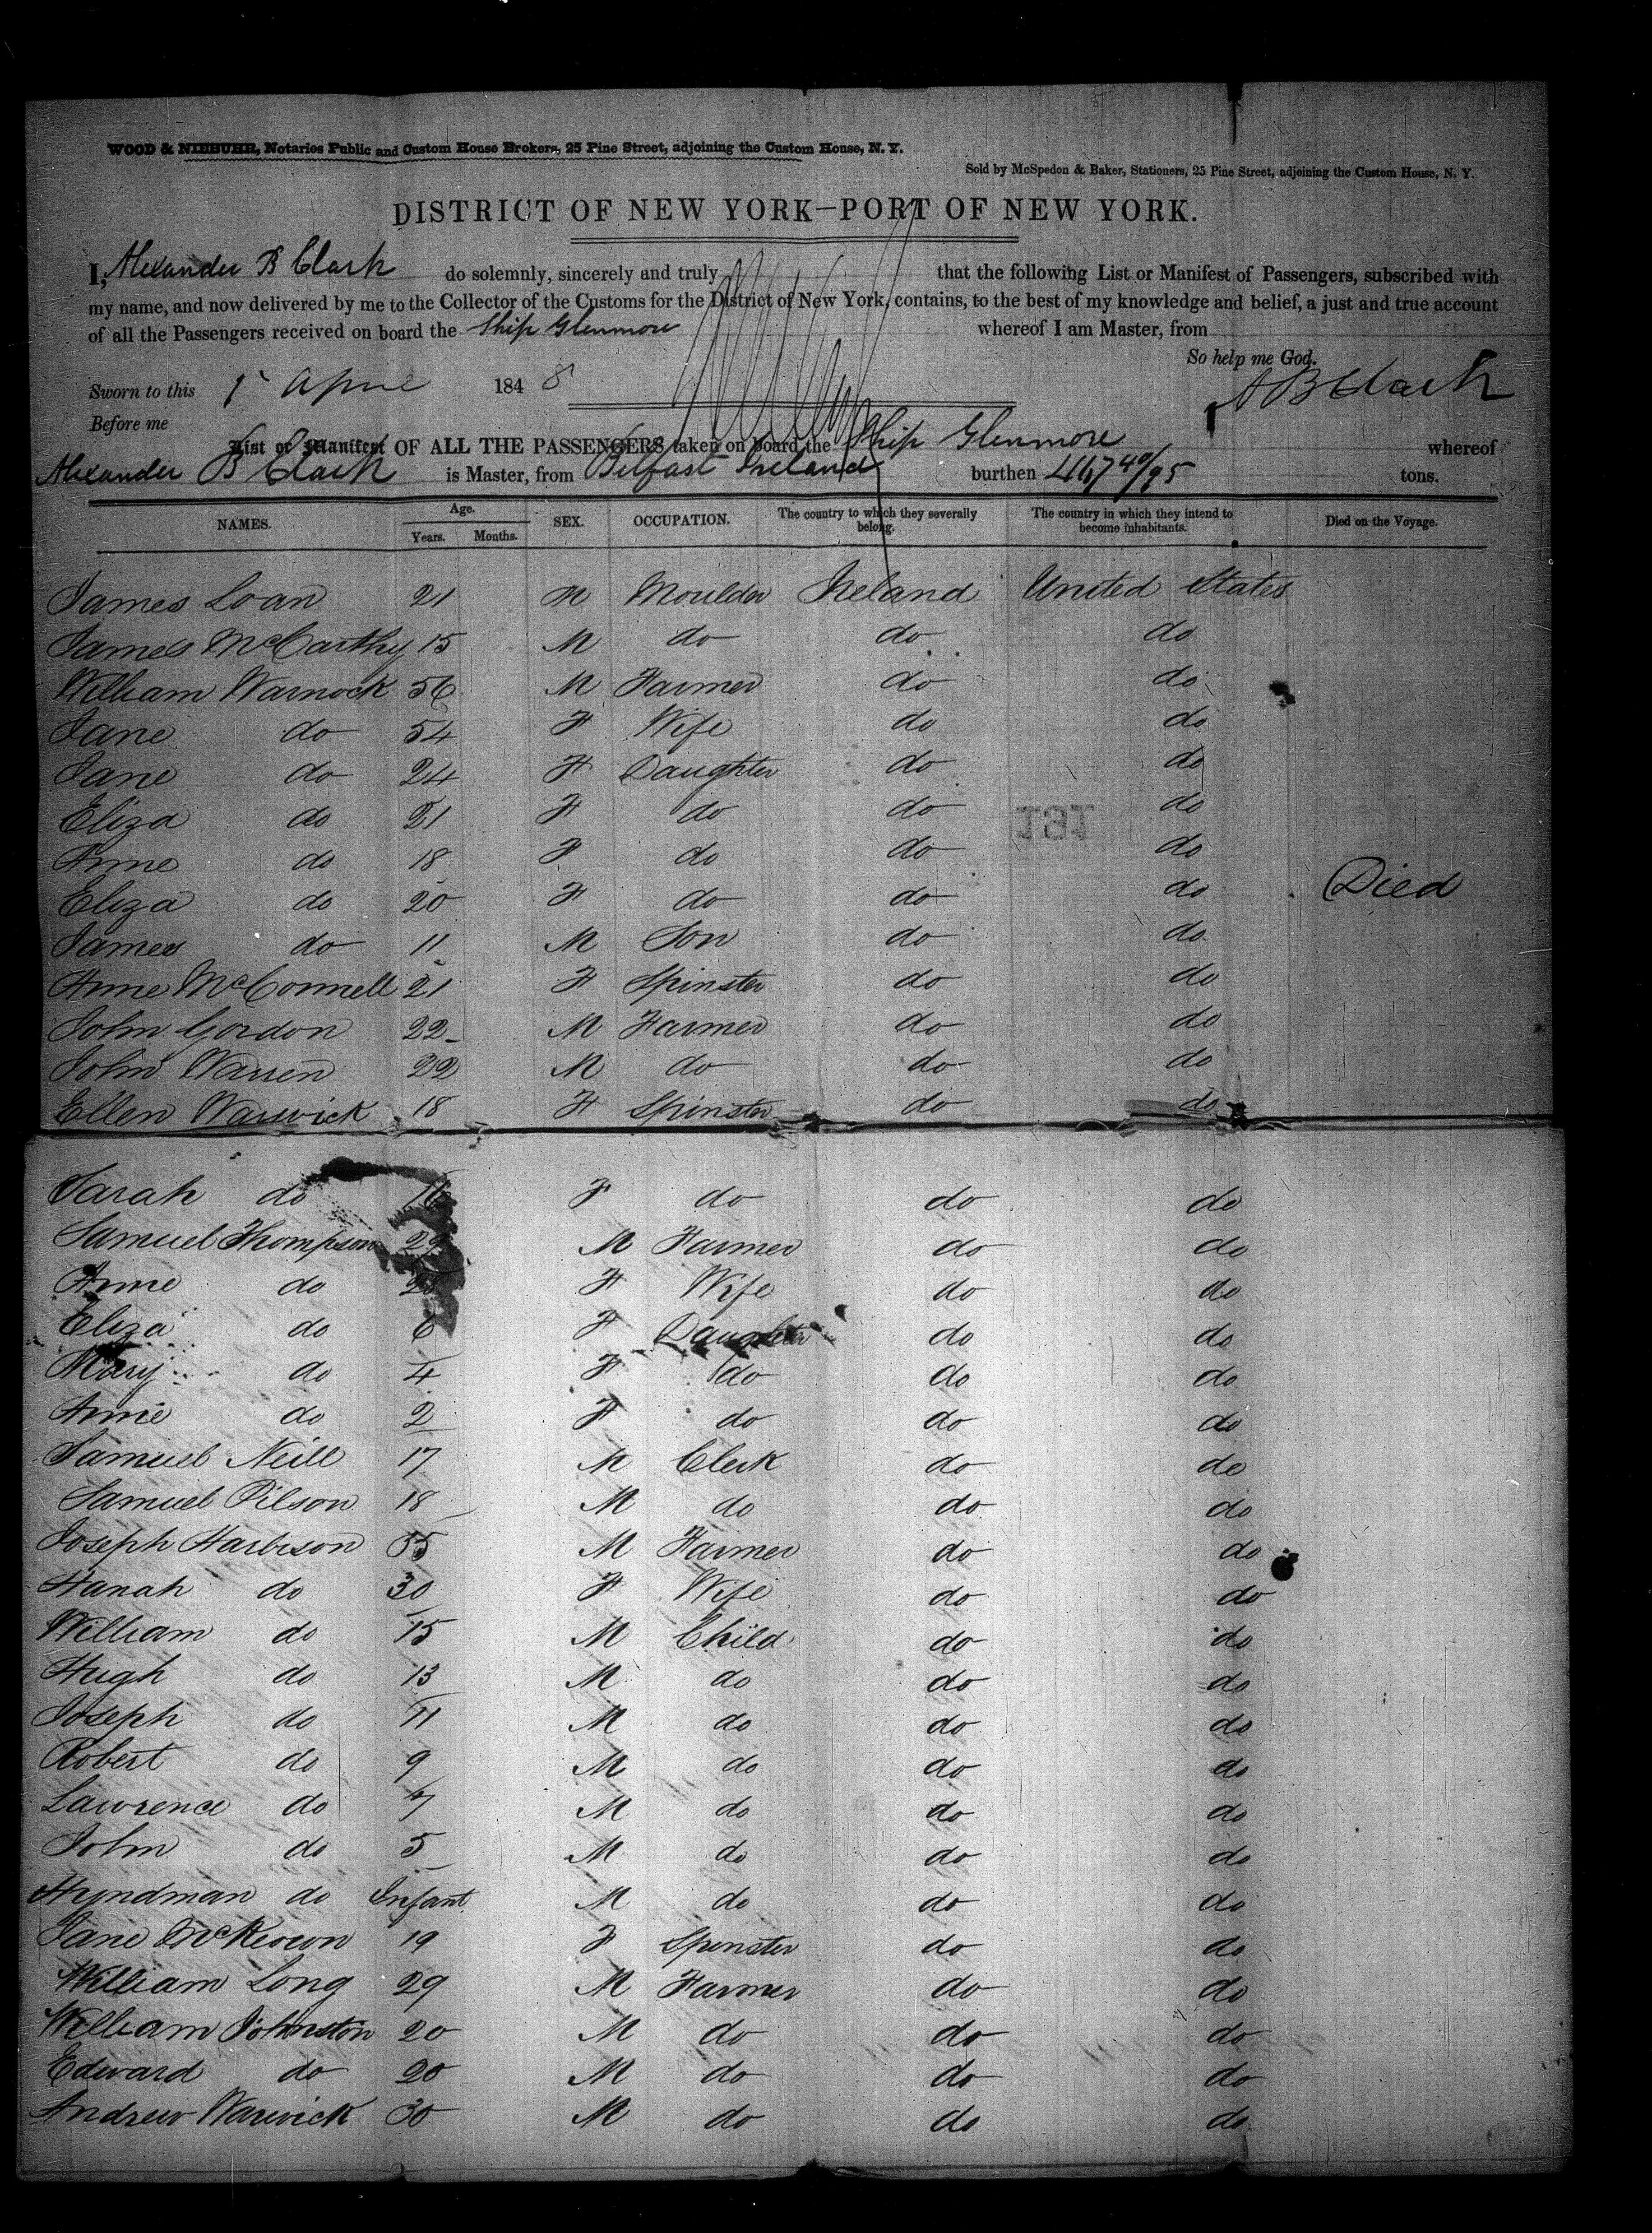 WOOD & NIEBUHR, Notaries Public and Custom House Brokers, 25 Pine Street, adjoining the Custom House, N. Y.
Sold by McSpedon & Baker, Stationers, 25 Pine Street, adjoining the Custom House, N. Y.
DISTRICT OF NEW YORK—PORT OF NEW YORK.
I, Alexander B Clark do solemnly, sincerely and truly that the following List or Manifest of Passengers, subscribed with
my name, and now delivered by me to the Collector of the Customs for the District of New York, contains, to the best of my knowledge and belief, a just and true account
of all the Passengers received on board the Ship Glenmore whereof I am Master, from
So help me God.
Sworn to this April 1848 A B Clark
Before me
List or Manifest OF ALL THE PASSENGERS taken on board the Ship Glenmore whereof
Alexander B Clark is Master, from Belfast Ireland burthen 467 40/95 tons.
NAMES. Age. Years. Months. SEX. OCCUPATION. The country to which they severally belong. The country in which they intend to become inhabitants. Died on the Voyage.
James Loan 21 M Moulder Ireland United States
James McCarthy 15 M do do do
William Warnock 56 M Farmer do do
Jane do 54 F Wife do do
Jane do 24 F Daughter do do
Eliza do 21 F do do do
191
Anne do 18 F do do do
Eliza do 20 F do do do Died
James do 11 M Son do do
Anne McConnell 21 F Spinster do do
John Gordon 22 M Farmer do do
John Warren 22 M do do do
Ellen Warwick 18 F Spinster do do
Sarah do 16 F do do do
Samuel Thompson 29 M Farmer do do
Anne do F Wife do do
Eliza do 6 F Daughter do do
Mary do 4 F do do do
Anne do 2 F do do do
Samuel Neill 17 M Clerk do do
Samuel Pilson 18 M do do do
Joseph Harbison 35 M Farmer do do
Hanah do 30 F Wife do do
William do 15 M Child do do
Hugh do 13 M do do do
Joseph do 11 M do do do
Robert do 9 M do do do
Lawrence do 7 M do do do
John do 5 M do do do
Hyndman do Infant M do do do
Jane McKeown 19 F Spinster do do
William Long 29 M Farmer do do
William Johnston 20 M do do do
Edward do 20 M do do do
Andrew Warwick 30 M do do do